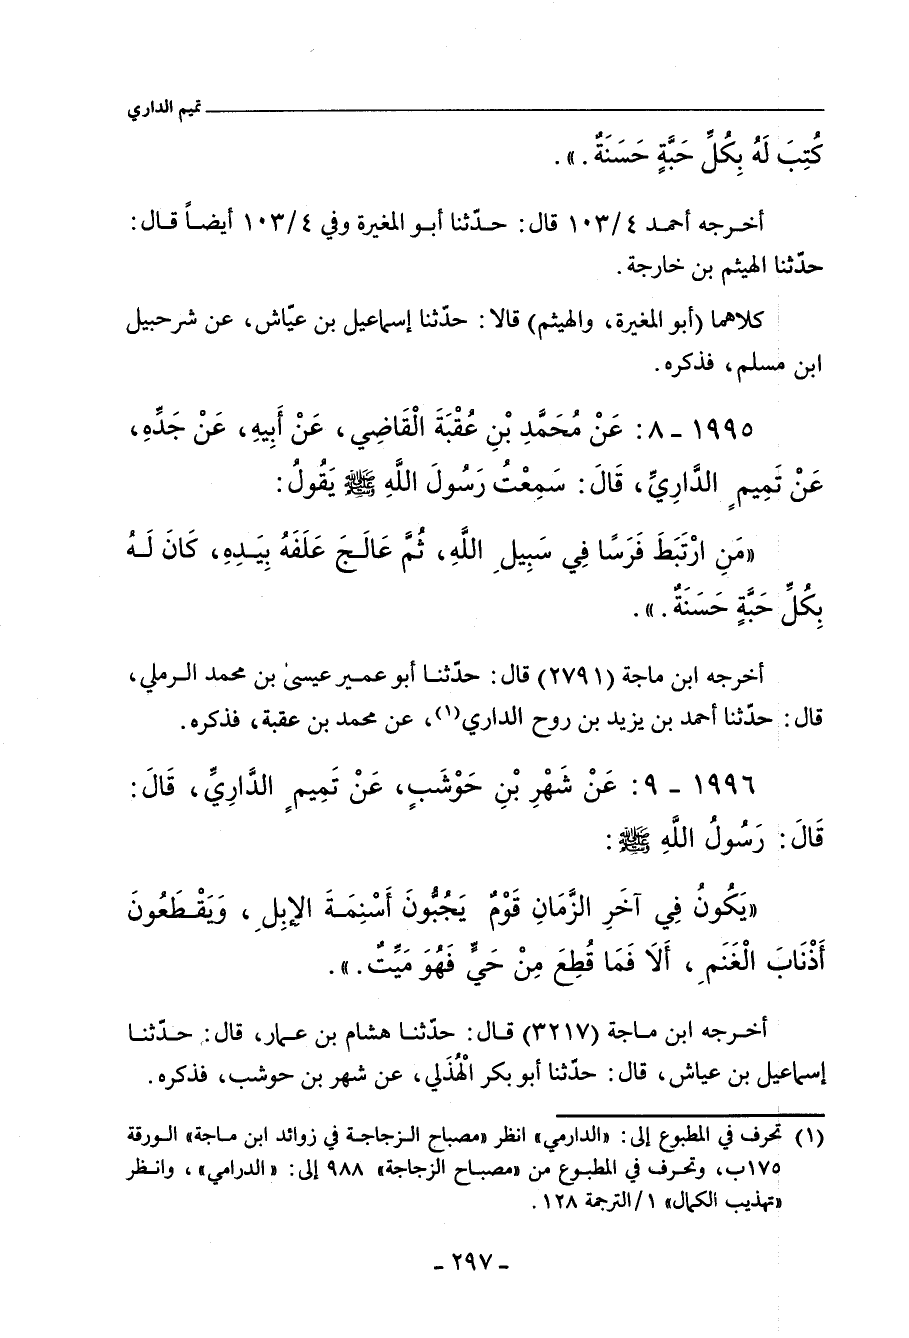 تميم الداري
كُتِبَ لَهُ بِكُلِّ حَبَّةٍ حَسَنَةٌ . » .
أخـرجه أحمـد ٤/١٠٣ قال : حـدّثنا أبـو المغيرة وفي ٤/١٠٣ أيضـاً قـال :
حدّثنا الهيثم بن خارجة .
كلاهما (أبو المغيرة، والهيثم) قالا : حدّثنا إسماعيل بن عيّاش، عن شرحبيل
ابن مسلم، فذكره .
١٩٩٥ - ٨ : عَنْ مُحَمَّدِ بْنِ عُقْبَةَ الْقَاضِي، عَنْ أَبِيهِ، عَنْ جَدِّهِ،
عَنْ تَمِيمٍ الدَّارِيِّ، قَالَ : سَمِعْتُ رَسُولَ اللَّهِ ﷺ يَقُولُ :
«مَنِ ارْتَبَطَ فَرَسًا فِي سَبِيلِ اللَّهِ، ثُمَّ عَالَجَ عَلَفَهُ بِيَـدِهِ، كَانَ لَـهُ
بِكُلِّ حَبَّةٍ حَسَنَةٌ . » .
أخرجه ابن ماجة (٢٧٩١) قال : حدّثنـا أبو عمـير عيسىٰ بن محمد الـرملي،
قال : حدّثنا أحمد بن يزيد بن روح الداري(١)، عن محمد بن عقبة، فذكره .
١٩٩٦ - ٩ : عَنْ شَهْرِ بْنِ حَوْشَبٍ، عَنْ تَمِيمٍ الدَّارِيِّ، قَالَ :
قَالَ : رَسُولُ اللَّهِ ﷺ :
«يَكُونُ فِي آخَرِ الزَّمَانِ قَوْمٌ يَجُبُّونَ أَسْنِمَـةَ الإِبِلِ، وَيَقْـطَعُونَ
أَذْنَابَ الْغَنَمِ، أَلَا فَمَا قُطِعَ مِنْ حَيٍّ فَهُوَ مَيِّتٌ . » .
أخـرجه ابن مـاجة (٣٢١٧) قـال : حدّثنـا هشام بن عـمار، قال : حـدّثنـا
إسماعيل بن عياش، قال : حدّثنا أبو بكر الْهُذَلي، عن شهر بن حوشب، فذكره .
(١) تحرف في المطبوع إلى : «الدارمي» انظر «مصباح الـزجاجـة في زوائد ابن مـاجة» الـورقة
١٧٥ب، وتحـرف في المطبـوع من «مصبـاح الزجاجة» ٩٨٨ إلى : «الدرامي»، وانـظر
«تهذيب الكمال» ١/الترجمة ١٢٨ .
- ٢٩٧ -